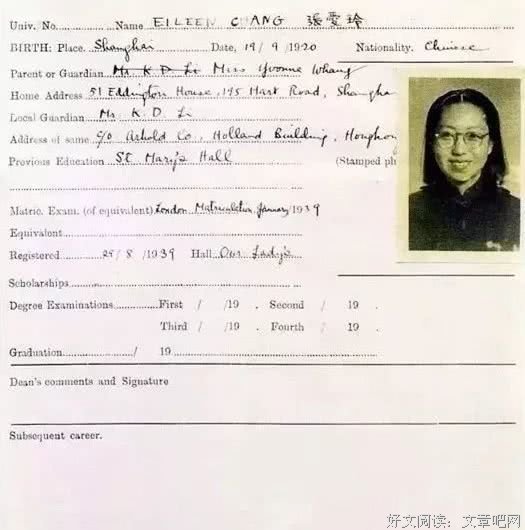 Univ. No. Name EILEEN CHANG 張愛玲
BIRTH: Place. Shanghai Date, 19/9/1920 Nationality. Chinese
Parent or Guardian Mr K D Li Miss Yvonne Whang
Home Address 51 Eddington House, 195 Hart Road, Shangha
Local Guardian Mr. K. D. Li
Address of same c/o Arnhold Co, Holland Building, Hongkong
Previous Education St. Mary's Hall (Stamped ph
Matric. Exam. (of equivalent) London Matriculation, January/1939
Equivalent
Registered 25/8/1939 Hall Our Lady's
Scholarships
Degree Examinations First / /19 . Second / 19 .
Third / /19 . Fourth / 19 .
Graduation / 19
Dean's comments and Signature
Subsequent career.
好文阅读:文章吧网